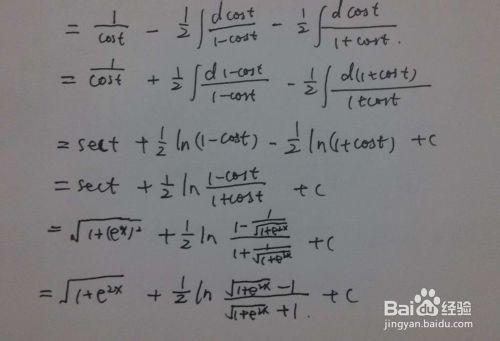 = 1/cost - 1/2 ∫ dcost/1-cost - 1/2 ∫ dcost/1+cost.
= 1/cost + 1/2 ∫ d1-cost/1-cost - 1/2 ∫ d(1+cost)/1+cost
= sect + 1/2 ln(1-cost) - 1/2 ln(1+cost) + c
= sect + 1/2 ln 1-cost/1+cost + c
= √1+(eˣ)² + 1/2 ln (1 - 1/√1+e²ˣ)/(1 + 1/√1+e²ˣ) + c
= √1+e²ˣ + 1/2 ln (√1+e²ˣ - 1)/(√1+e²ˣ + 1). + c
Baidu经验
jingyan.baidu.com